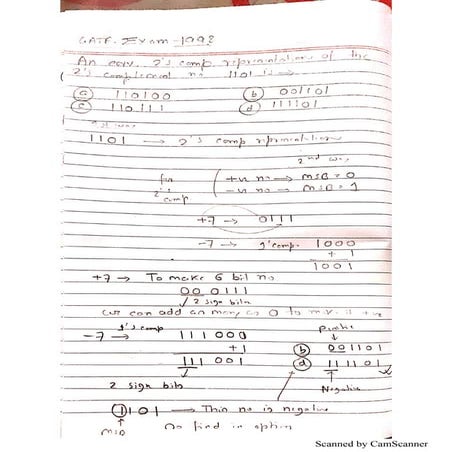 GATE Exam 1998
An equ. 2's comp representation of the
2's complement no 1101 is →
(a) 110100 (b) 001101
(c) 110111 (d) 111101
1101 → 2's comp representation
2nd way
for 2's comp
+ve no → MSB = 0
-ve no → MSB = 1
+7 → 0111
-7 → 1's comp 1000
+ 1
1001
+7 → To make 6 bit no
000111
2 sign bits
we can add as many as 0 to make it +ve
1's comp
-7 → 111000
+1
111001
2 sign bits
Positive
(b) 001101
(d) 111101
Negative
1101 → This no is negative
MSB so find in option
Scanned by CamScanner